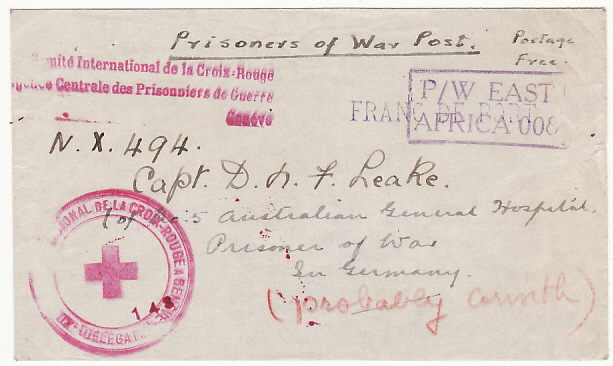 Prisoners of War Post.
Postage
Free.
mité International de la Croix-Rouge
gence Centrale des Prisonniers de Guerre
Genève
FRANC DE PORT
P/W EAST
AFRICA 008
N.X. 494.
Capt. D. L. F. Leake.
(of No 5 Australian General Hospital.
Prisoner of War
In Germany.
(probably Corinth)
IONAL DE LA CROIX-ROUGE A GENEVE
DELEGA
143